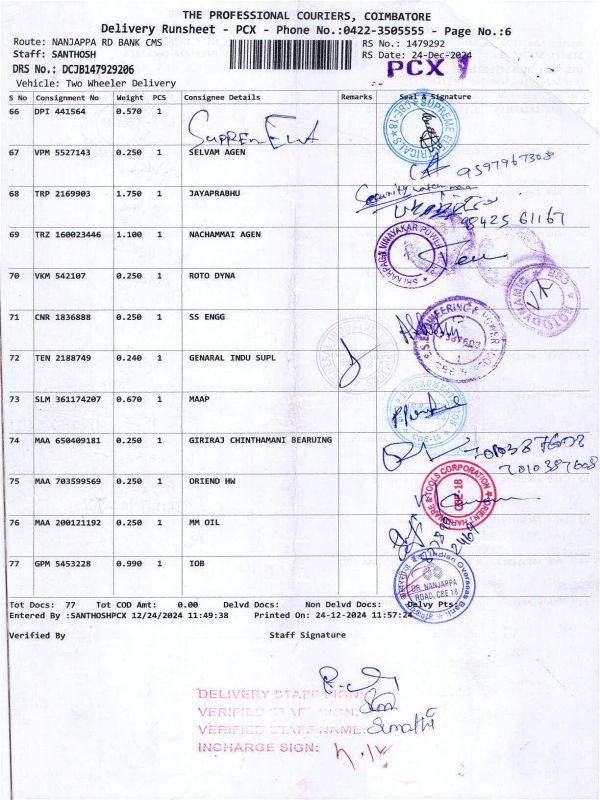 THE PROFESSIONAL COURIERS, COIMBATORE
Delivery Runsheet - PCX - Phone No.:0422-3505555 - Page No.:6
Route: NANJAPPA RD BANK CMS RS No.: 1479292
Staff: SANTHOSH RS Date: 24-Dec-2024
DRS No.: DCJB147929206 PCX
Vehicle: Two Wheeler Delivery
S No Consignment No Weight PCS Consignee Details Remarks Seal & Signature
66 DPI 441564 0.570 1
SUPREME ELECTRICALS CBE-18
67 VPM 5527143 0.250 1 SELVAM AGEN
9597967308
68 TRP 2169903 1.750 1 JAYAPRABHU
Security
98425 61167
69 TRZ 160023446 1.100 1 NACHAMMAI AGEN
SHI KARPAGA VINAYAKAR
70 VKM 542107 0.250 1 ROTO DYNA
ROTODYNAMIC CBE
71 CNR 1836888 0.250 1 SS ENGG
72 TEN 2188749 0.240 1 GENARAL INDU SUPL
73 SLM 361174207 0.670 1 MAAP
CBE-18
74 MAA 650409181 0.250 1 GIRIRAJ CHINTHAMANI BEARUING
7010387608
75 MAA 703599569 0.250 1 ORIEND HW
ORIENT HARDWARE & TOOLS CORPORATION CBE-18
76 MAA 200121192 0.250 1 MM OIL
77 GPM 5453228 0.990 1 IOB
Indian Overseas Bank
DR. NANJAPPA
ROAD, CBE 18
Tot Docs: 77 Tot COD Amt: 0.00 Delvd Docs: Non Delvd Docs: Delvy Pts:
Entered By :SANTHOSHPCX 12/24/2024 11:49:38 Printed On: 24-12-2024 11:57:24
Verified By Staff Signature
DELIVERY STAFF SIGN:
VERIFIED STAFF SIGN:
VERIFIED STAFF NAME: Sumathi
INCHARGE SIGN: